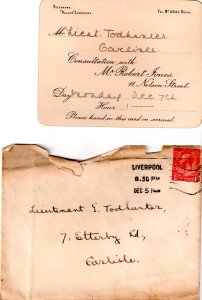 Telephone,
Tel Nº 2841 Royal.
At Lieut. Todhunter
Carlisle.
Consultation with
Mr. Robert Jones,
11 Nelson Street.
Day Monday Dec 7th
Hour
Please hand in this card on arrival.
LIVERPOOL
8.30 PM
DEC 5
Lieutenant E. Todhunter,
7, Etterby Rd,
Carlisle.